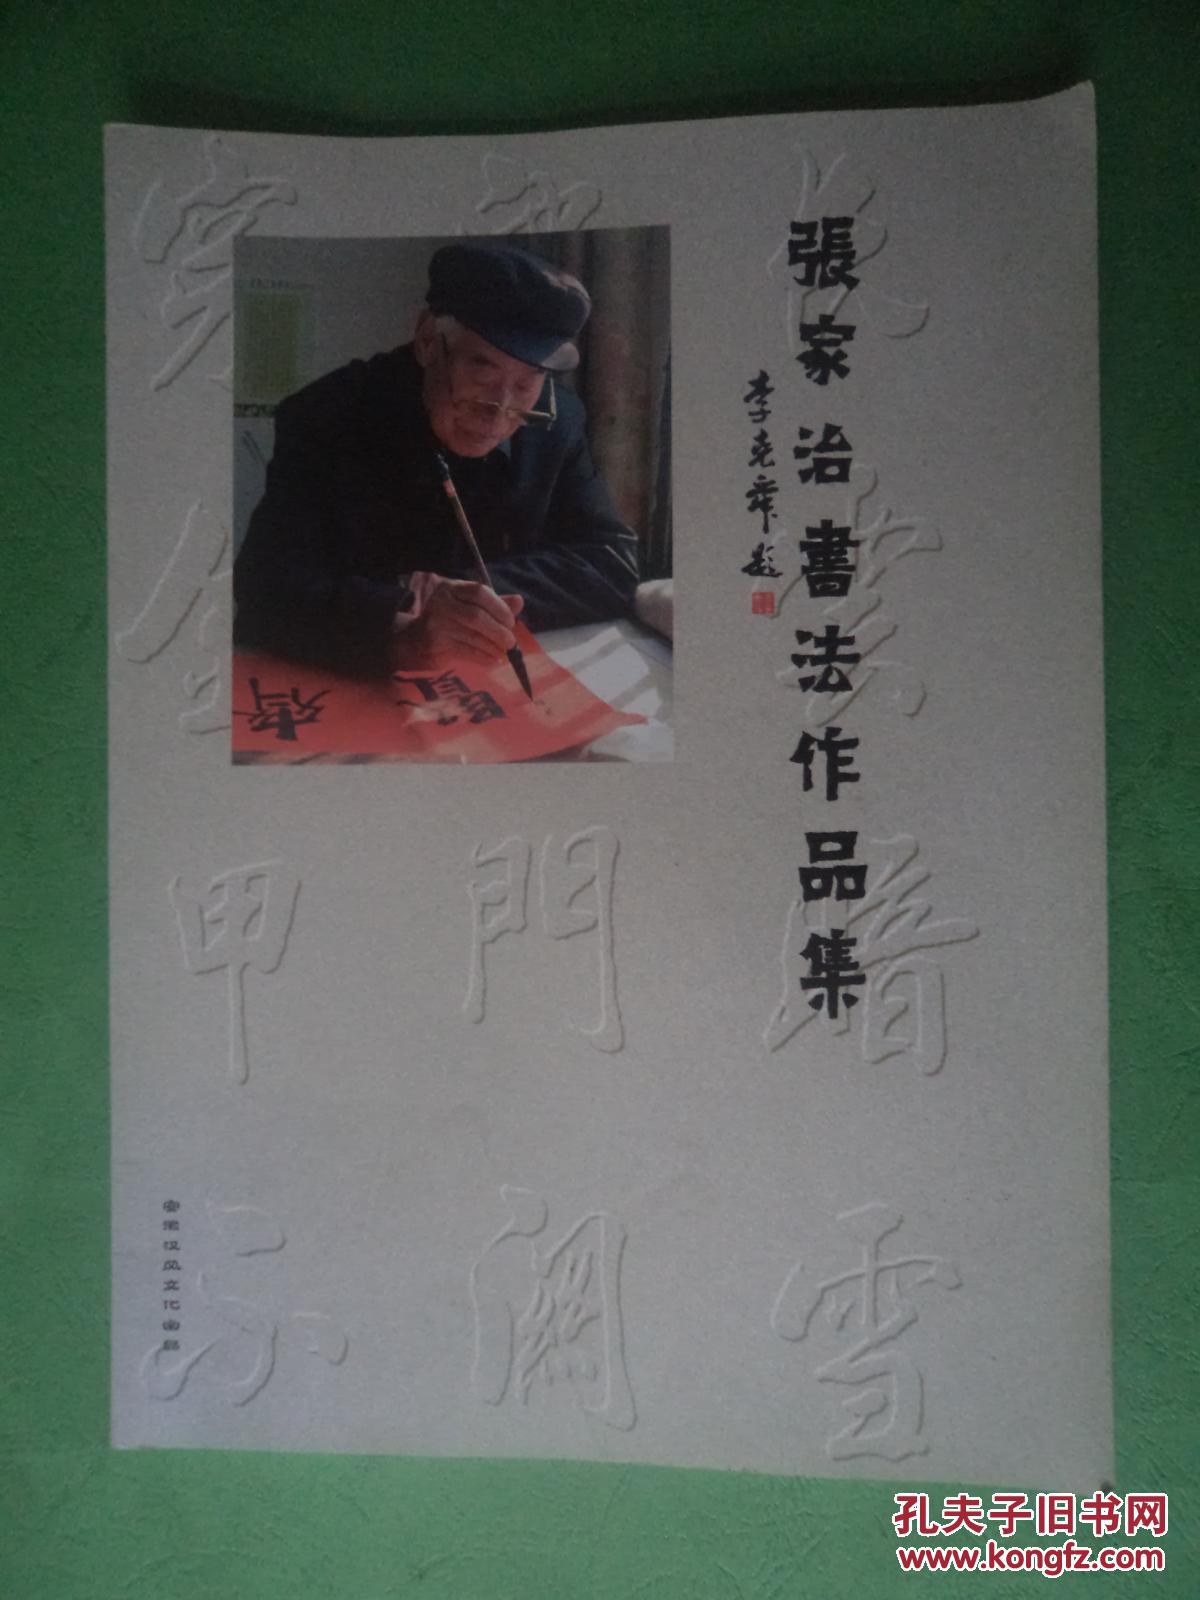 張家治書法作品集
李克舜題
門
闕
暗
雪
甲
安徽汉风文化出品
孔夫子旧书网
www.kongfz.com